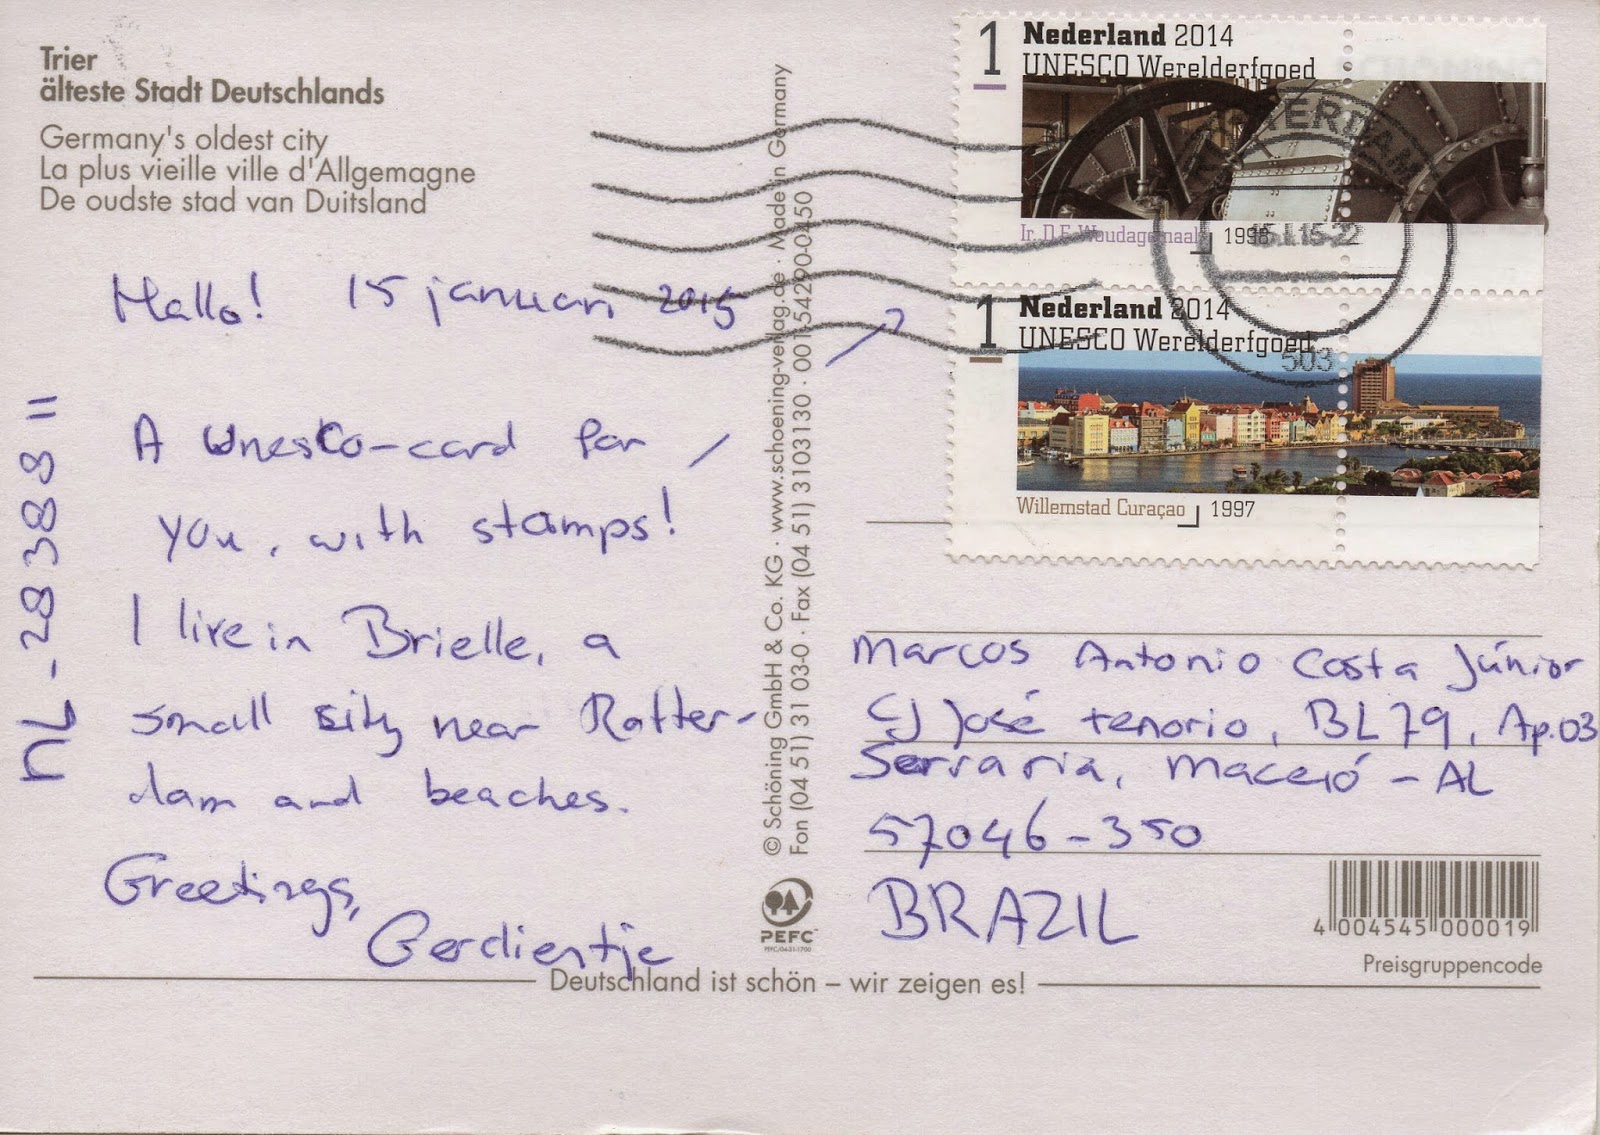 Trier
älteste Stadt Deutschlands
Germany's oldest city
La plus vieille ville d'Allgemagne
De oudste stad van Duitsland
Hallo! 15 januari 2015
A Unesco-card for
you, with stamps!
I live in Brielle, a
small sity near Rotter-
dam and beaches.
Greetings,
Gerdientje
NL-2838811
© Schöning GmbH & Co. KG · www.schoening-verlag.de · Made in Germany
Fon (04 51) 31 03-0 · Fax (04 51) 3103130 · 001 54290-0450
PEFC
1 Nederland 2014
UNESCO Werelderfgoed
Ir. D.F. Woudagemaal 1998
1 Nederland 2014
UNESCO Werelderfgoed
503
Willemstad Curaçao 1997
Marcos Antonio Costa Júnior
CJ José tenorio, BL 79, Ap.03
Serraria, Maceió - AL
57046-350
BRAZIL
4 004545 000019
Preisgruppencode
Deutschland ist schön – wir zeigen es!